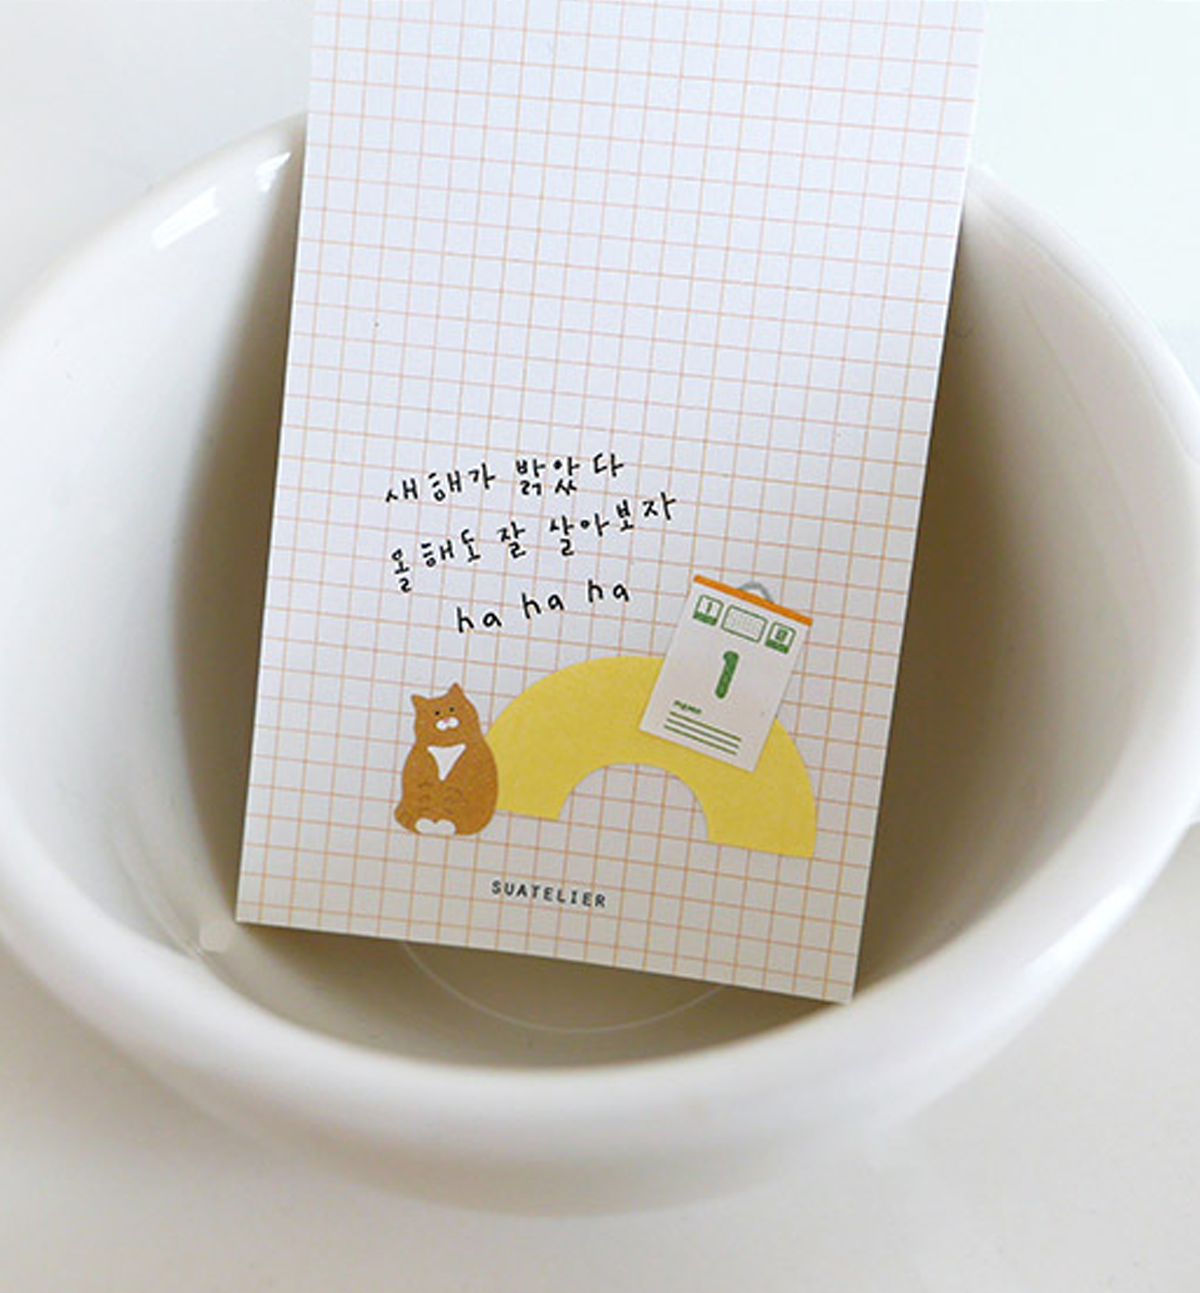 새해가 밝았다
올해도 잘 살아보자
ha ha ha
1
memo
SUATELIER